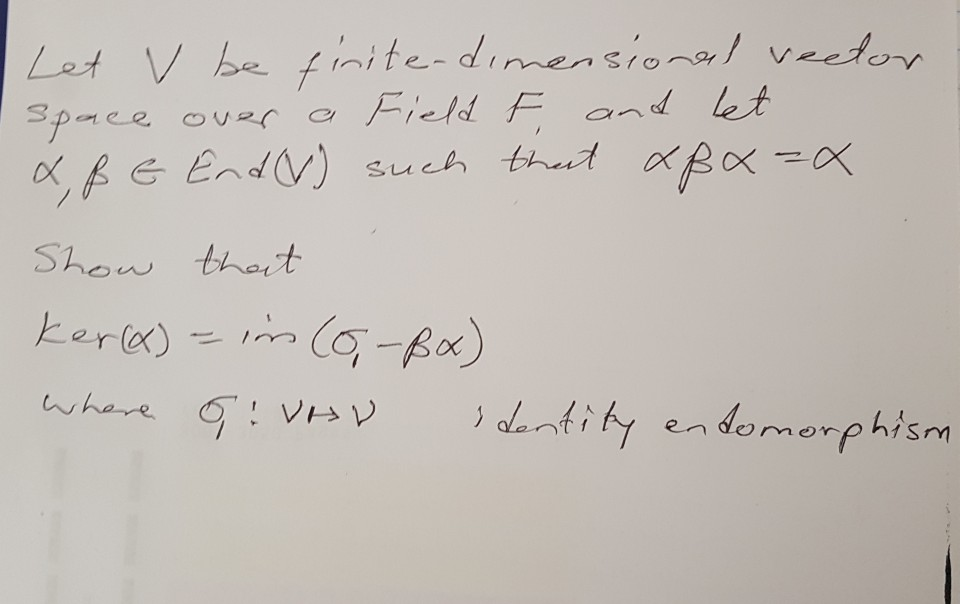 Let V be finite-dimensional vector
space over a Field F, and let
α, β ∈ End(V) such that αβα = α
Show that
ker(α) = im (σ₁ - βα)
where σ₁ : v ↦ v identity endomorphism